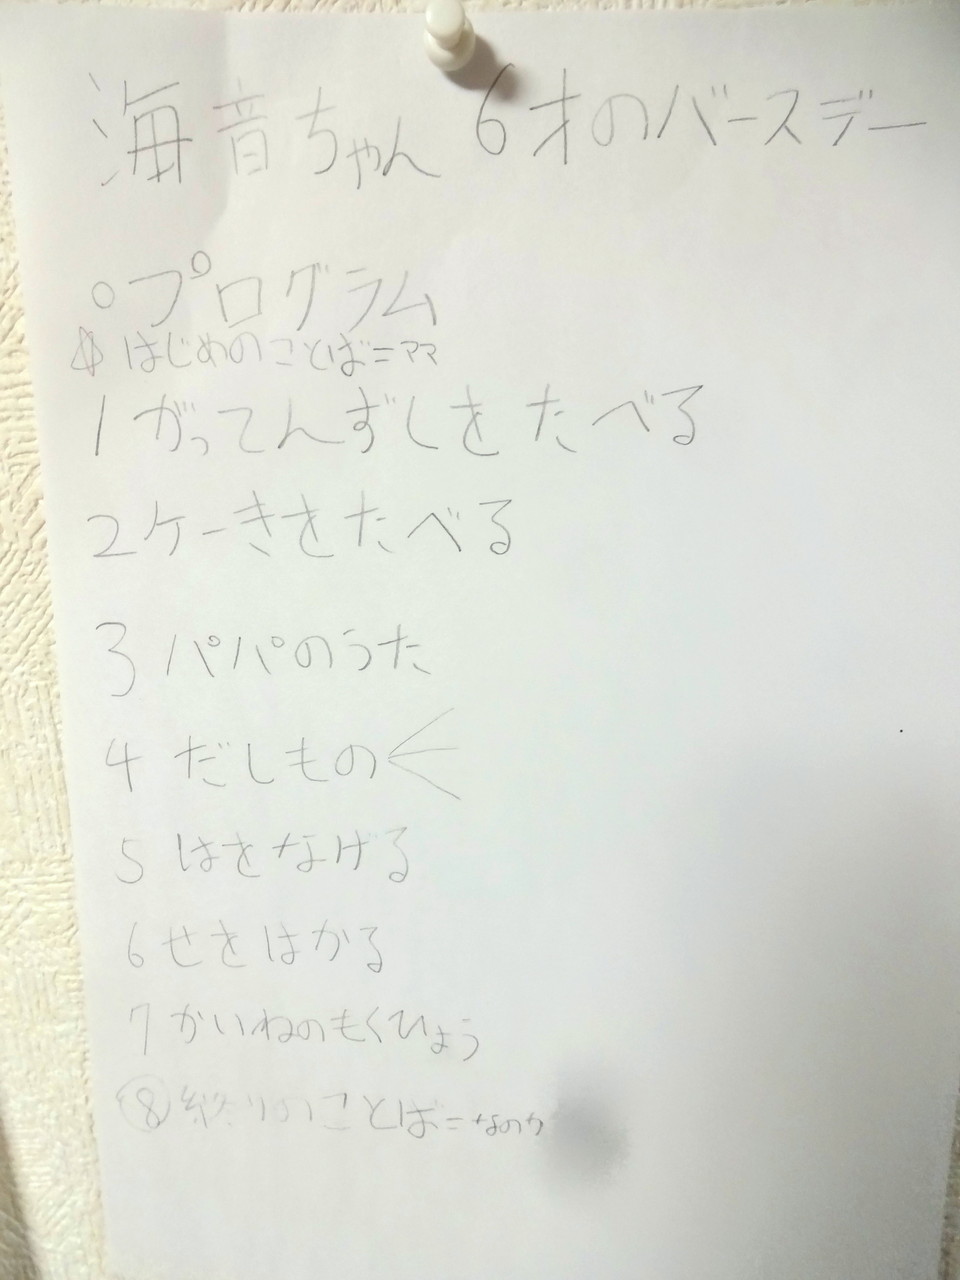 海音ちゃん 6才のバースデー
○プログラム
はじめのことば=ママ
1 がってんずしをたべる
2ケーきをたべる
3 パパのうた
4 だしもの
5 はをなげる
6せをはかる
7 かいねのもくひょう
⑧終りのことば=なのか